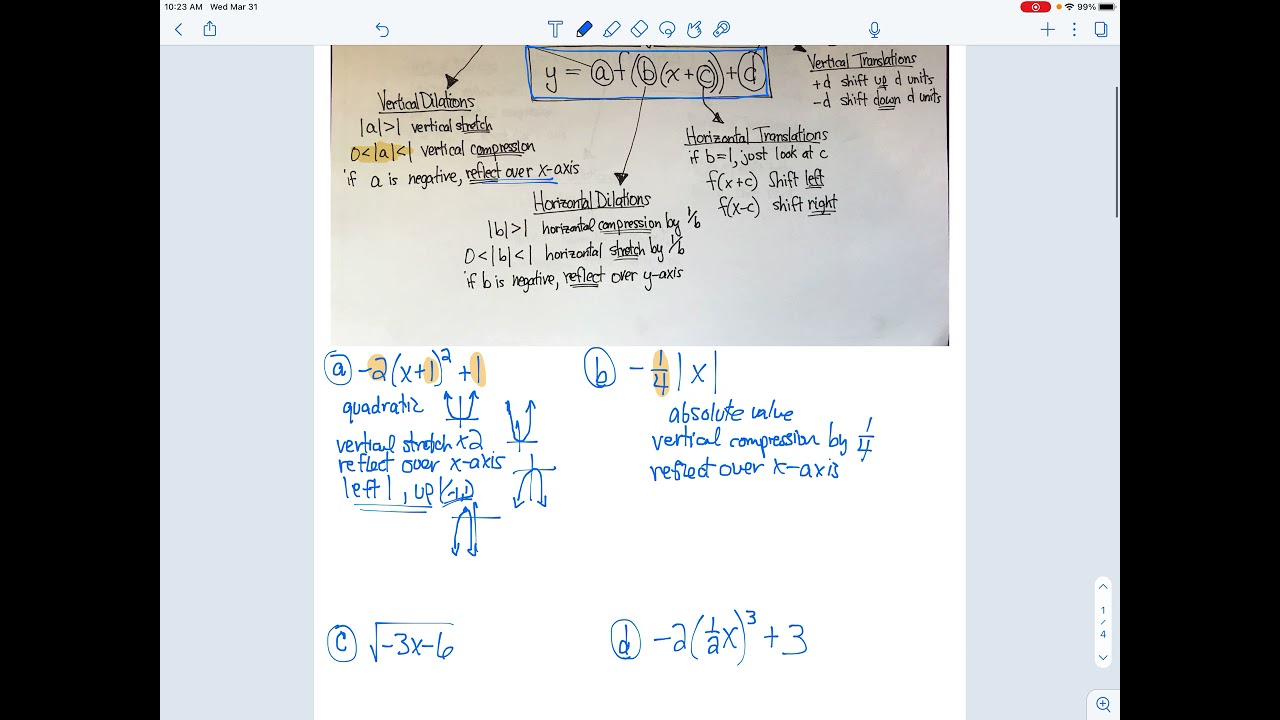 10:23 AM Wed Mar 31
99%
T
y = a f(b(x + c)) + d
Vertical Translations
+d shift up d units
-d shift down d units
Vertical Dilations
|a|>1 vertical stretch
0<|a|<1 vertical compression
if a is negative, reflect over x-axis
Horizontal Translations
if b=1, just look at c
f(x+c) shift left
f(x-c) shift right
Horizontal Dilations
|b|>1 horizontal compression by 1/b
0<|b|<1 horizontal stretch by 1/b
if b is negative, reflect over y-axis
a -2(x+1)² +1
quadratic
vertical stretch x2
reflect over x-axis
left 1, up 1 (-1,1)
b -1/4 |x|
absolute value
vertical compression by 1/4
reflect over x-axis
c √-3x-6
d -2(1/2x)³ + 3
1
/
4